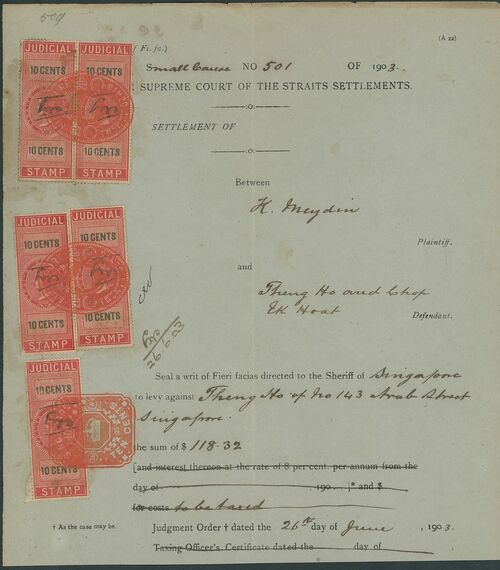 509
(A 22)
( Fi. fa.)
Small Cause NO 501 OF 1903.
SUPREME COURT OF THE STRAITS SETTLEMENTS.
SETTLEMENT OF
Between
K. Meydin
Plaintiff.
and
Theng Ho and Chop
Ek Hoat
Defendant.
26.6.03
Seal a writ of Fieri facias directed to the Sheriff of Singapore
to levy against Theng Ho of No 143 Arab Street
Singapore.
the sum of $ 118.32
[and interest thereon at the rate of 8 per cent. per annum from the
day of , 190 ]* and $
for costs to be taxed
† As the case may be.
Judgment Order † dated the 26th day of June, 1903.
Taxing Officer's Certificate dated the day of
JUDICIAL JUDICIAL
10 CENTS 10 CENTS
10 CENTS 10 CENTS
STAMP STAMP
JUDICIAL JUDICIAL
10 CENTS 10 CENTS
10 CENTS 10 CENTS
STAMP STAMP
JUDICIAL
10 CENTS
10 CENTS
STAMP